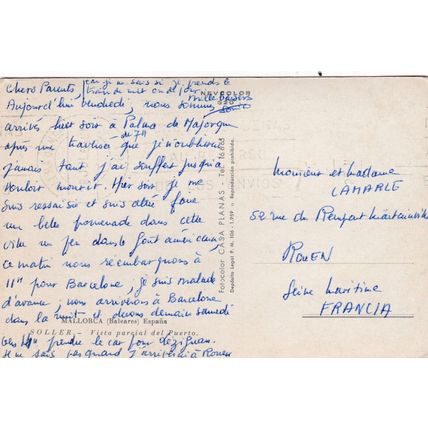 Chers Parents,
car je ne sais si je prends le
train de nuit ou de jour
mille baisers
Aujourd'hui vendredi, nous sommes
arrivés hier soir à Palma de Majorque
après une traversée de 7h que je n'oublierai
jamais tant j'ai souffert jusqu'à
vouloir mourir. Hier soir je me
suis ressaisie et suis allée faire
une belle promenade dans cette
ville un peu dans le goût américain,
ce matin nous réembarquons à
11h pour Barcelone, je suis malade
d'avance, nous arrivons à Barcelone
dans la nuit et devons demain samedi
MALLORCA (Baleares) España
SOLLER.- Vista parcial del Puerto.
vers 14h prendre le car pour Lézignan.
Je ne sais pas quand j'arriverai à Rouen
NEVCOLOR
Fotocolor CASA PLANAS - Tel. 16165
Depósito Legal P. M. 106 - 1.959 - Reproducción prohibida.
Monsieur et Madame
LAMARLE
52 rue du Rempart Martainville
ROUEN
Seine Maritime
FRANCIA